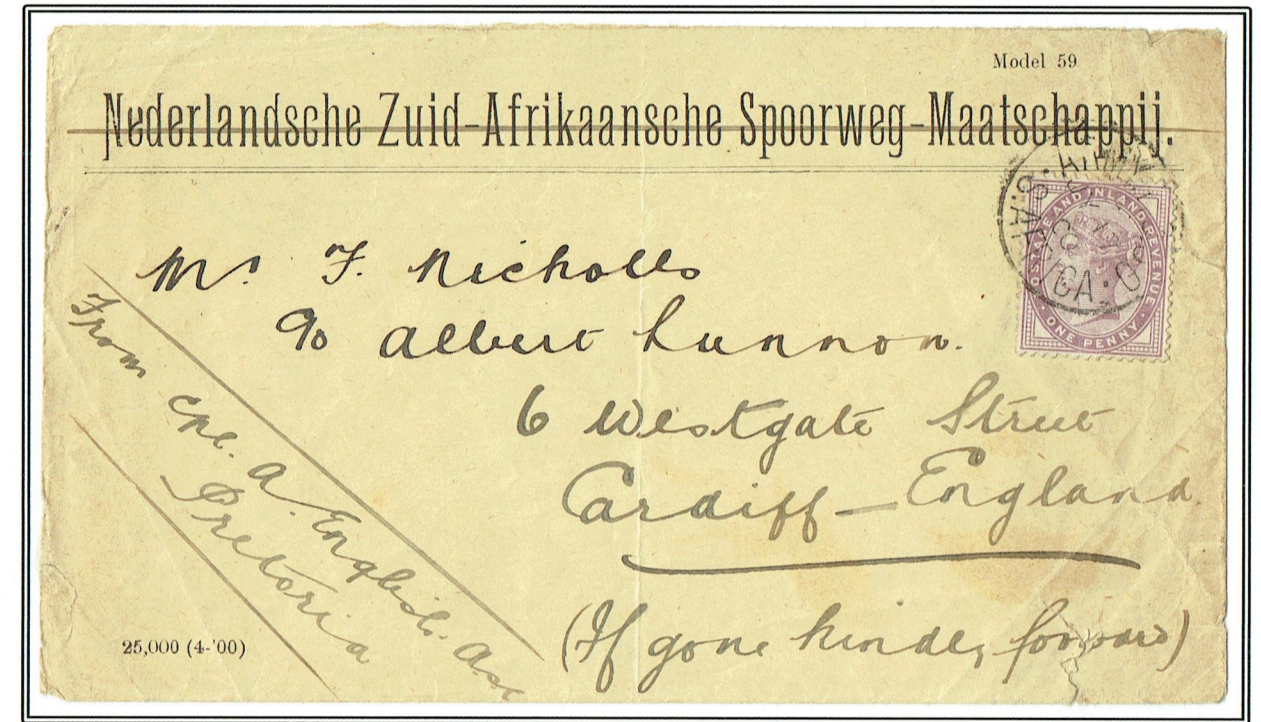 Model 59
Nederlandsche Zuid-Afrikaansche Spoorweg-Maatschappij.
POSTAGE AND INLAND REVENUE
ONE PENNY
Mr. F. Nicholls
c/o Albert Lunnon.
6 Westgate Street
Cardiff – England
(If gone kindly forward)
From Cpl. A. English. ASC
Pretoria
25,000 (4-'00)